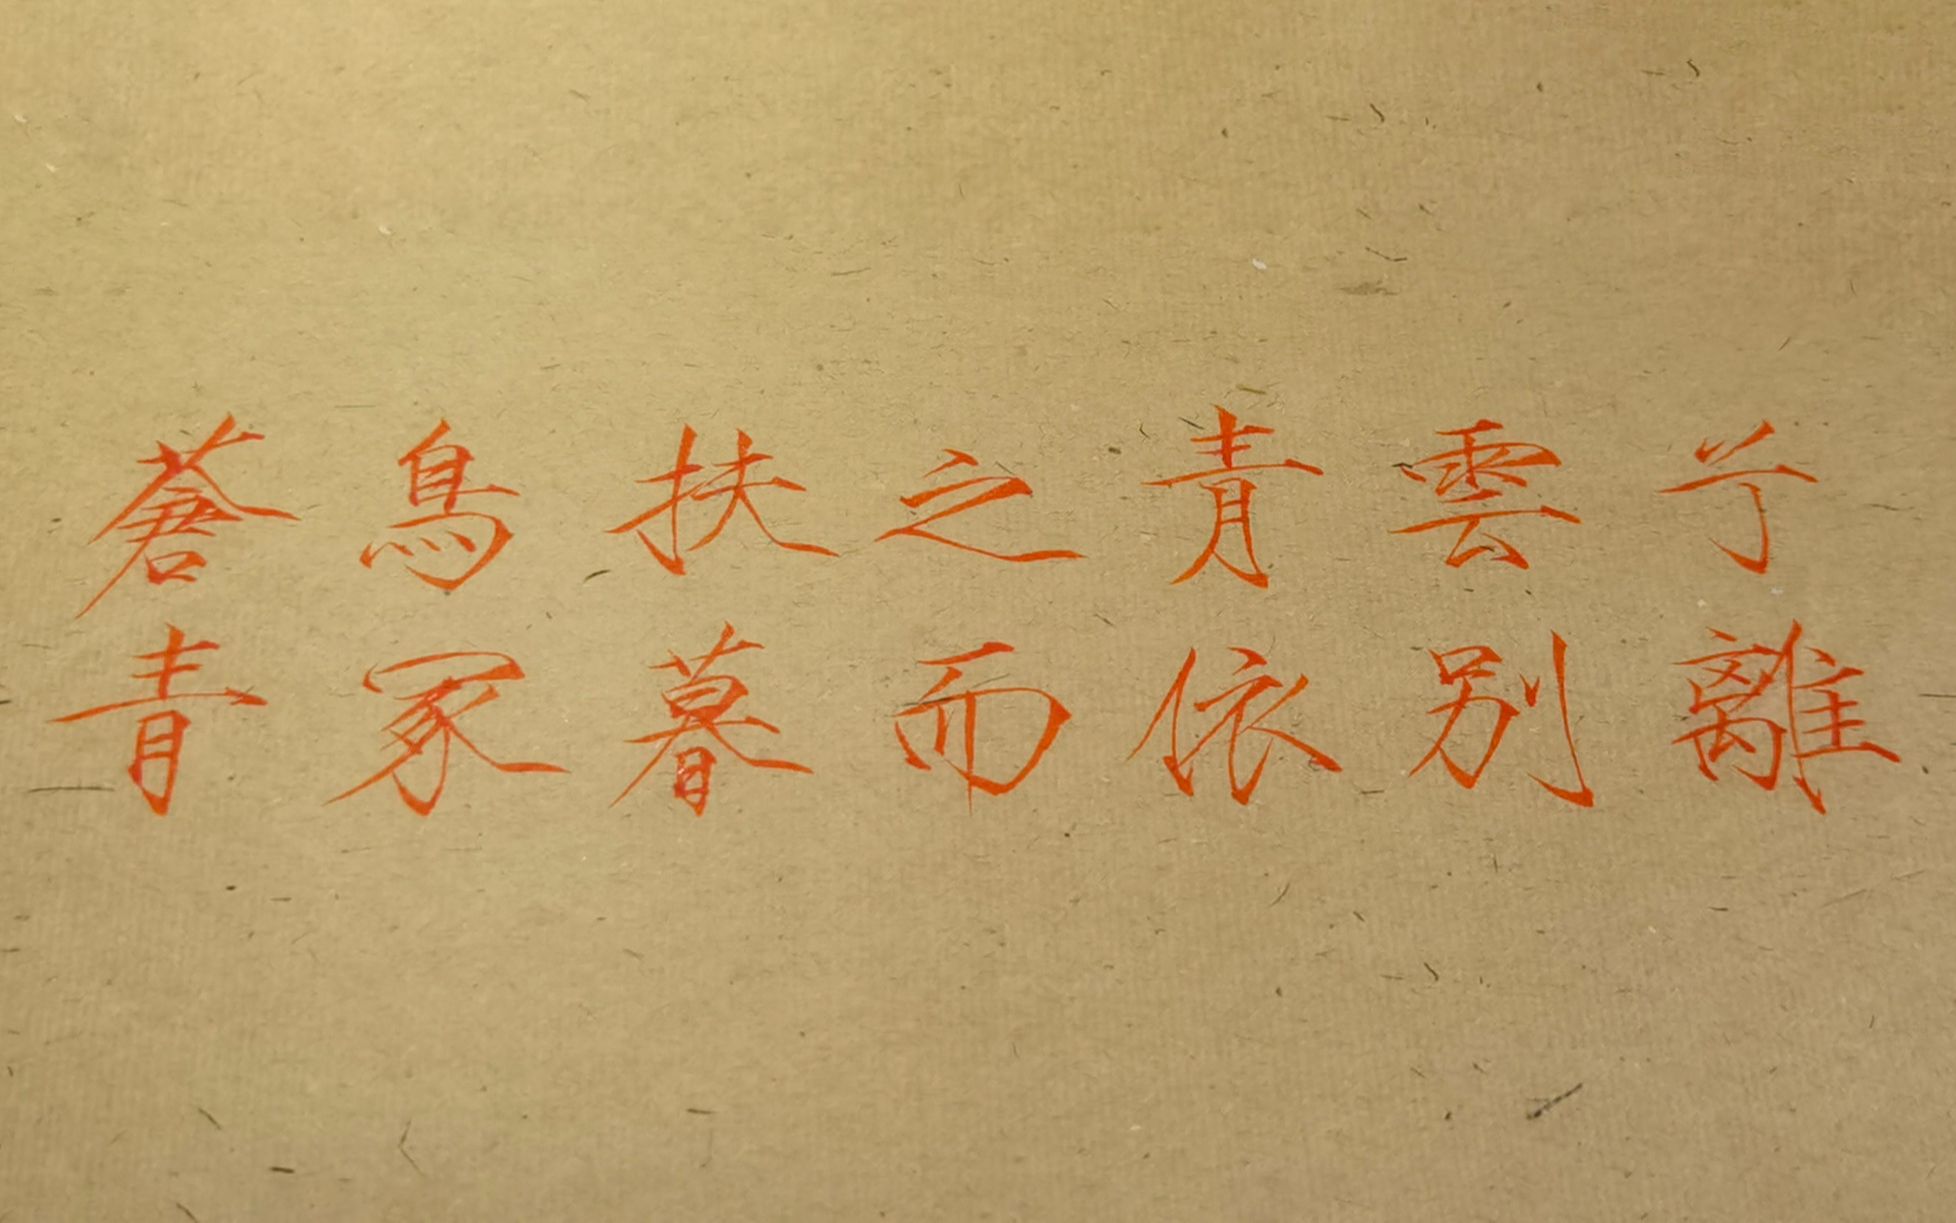 蒼鳥扶之青雲兮
青冢暮而依別離